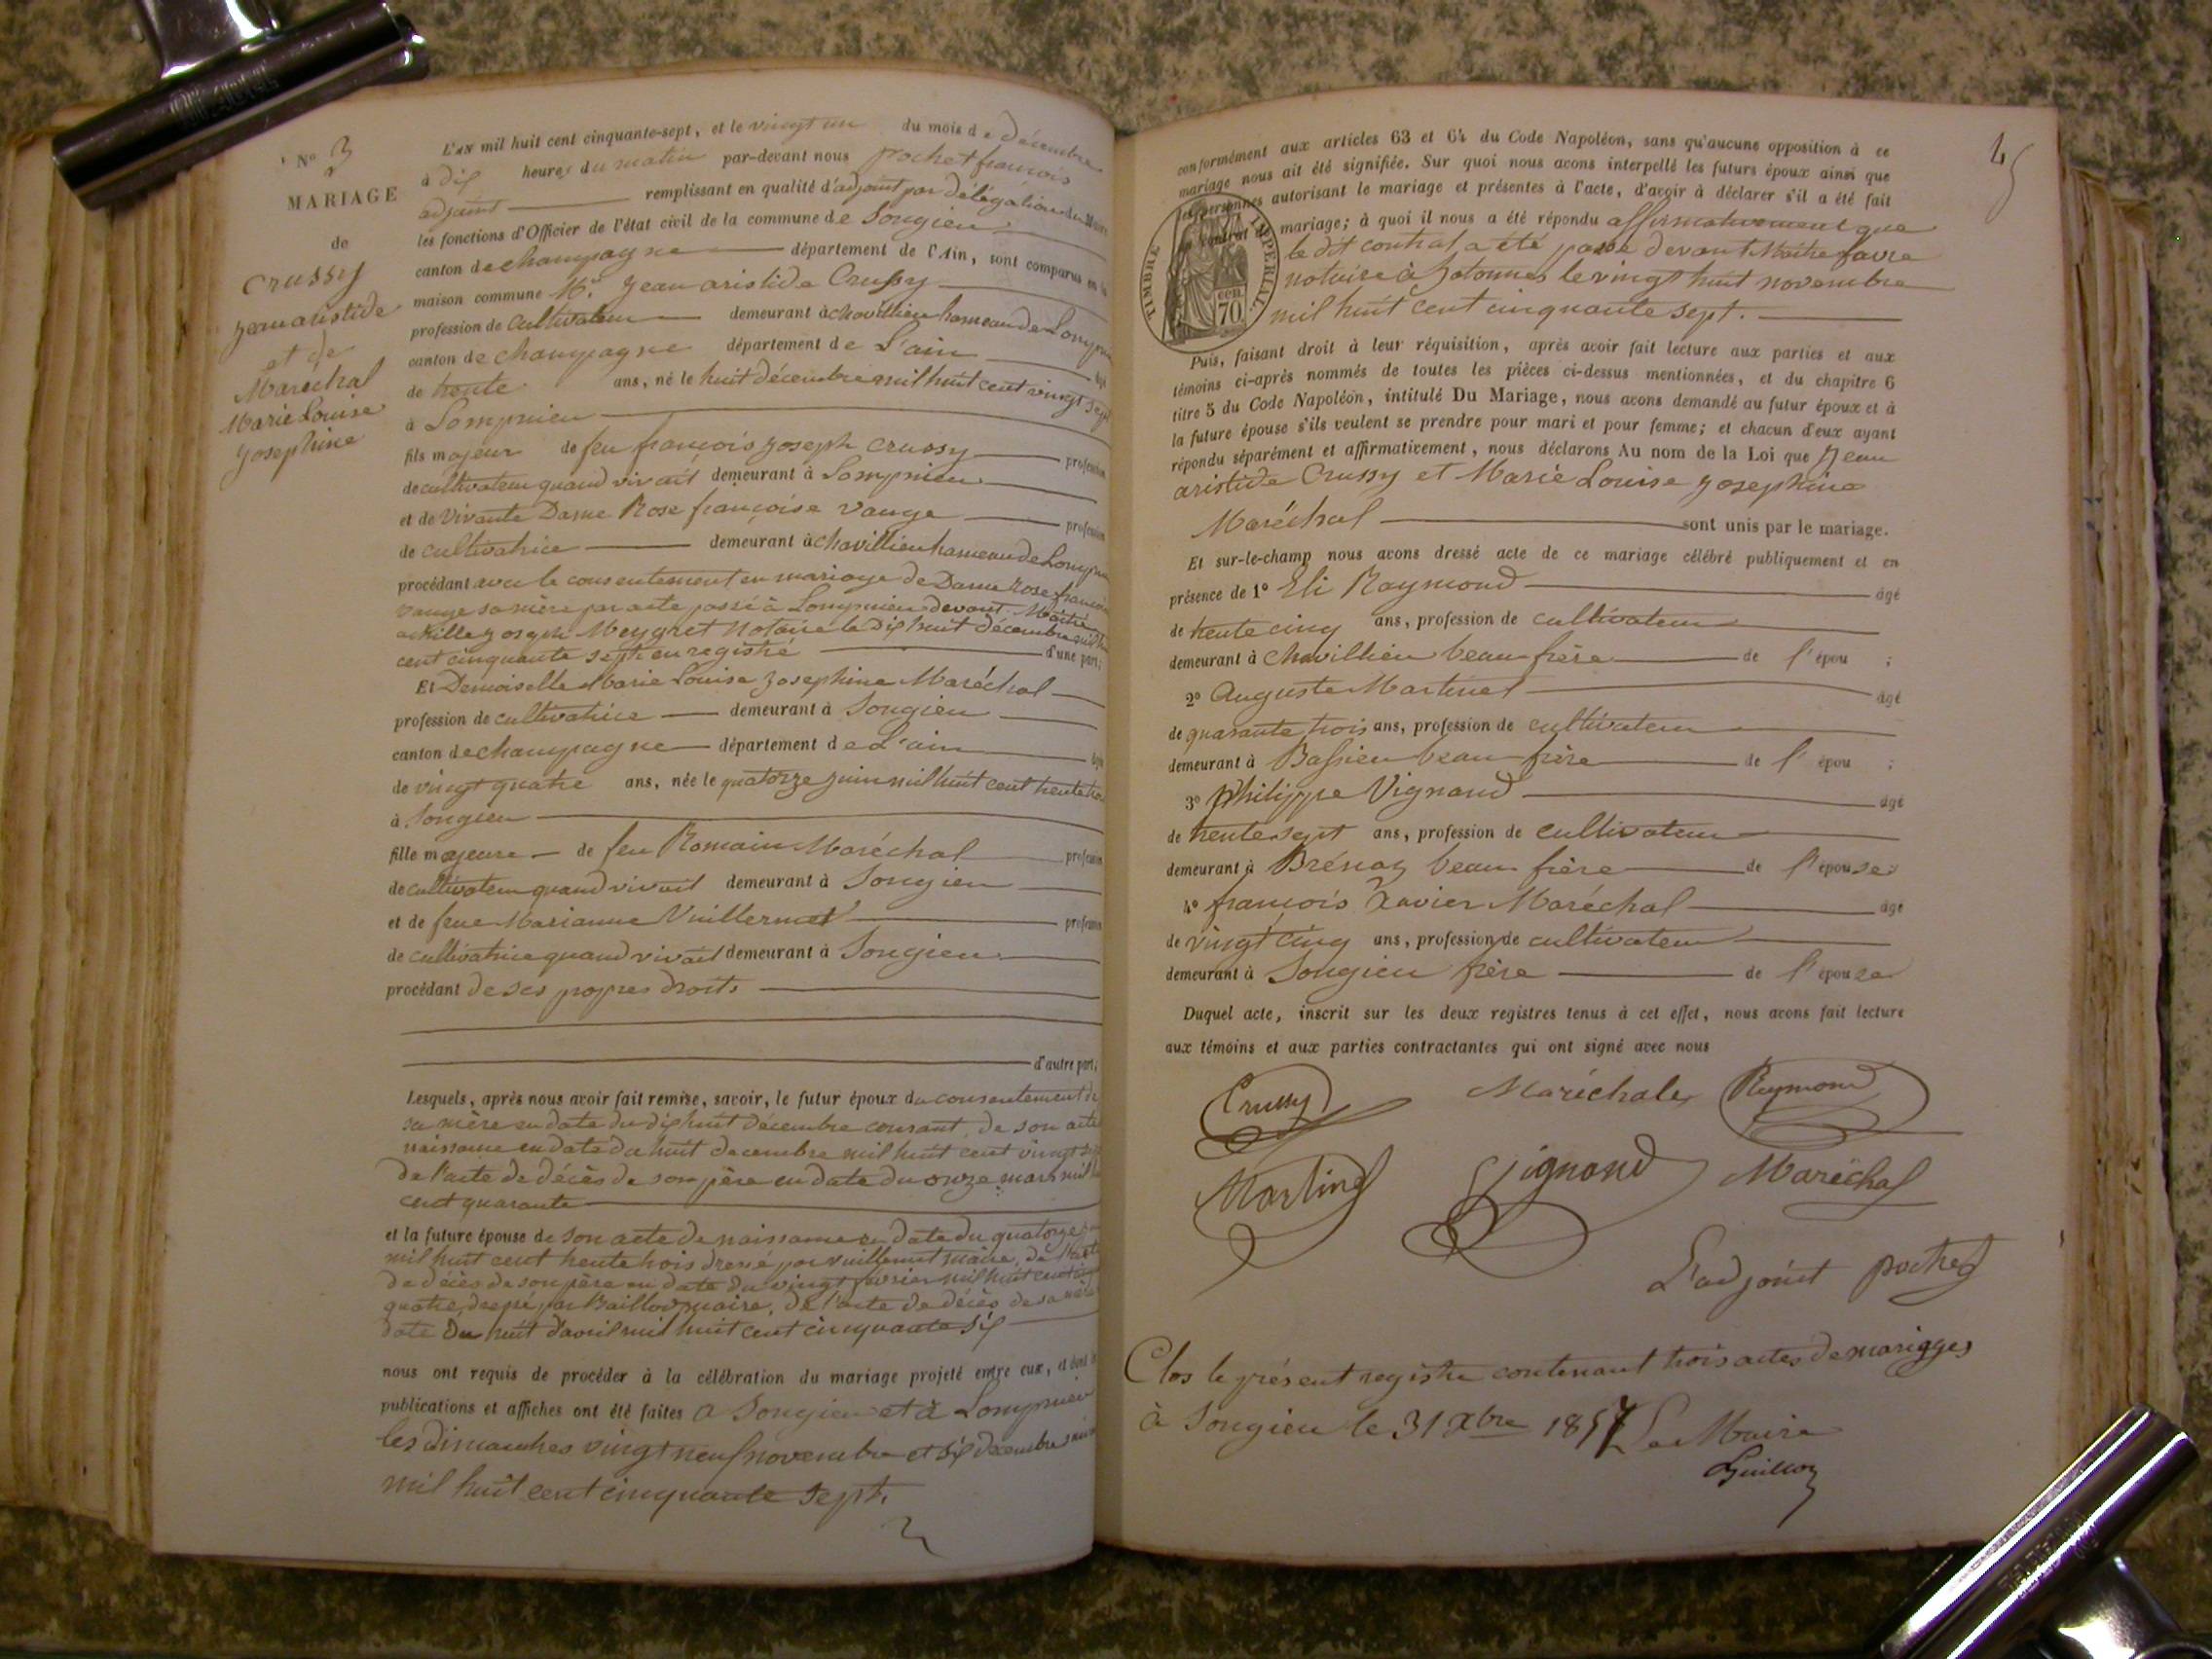 N° 3
MARIAGE
de
Crussy
Jean aristide
et de
Maréchal
Marie Louise
Josephine
L'AN mil huit cent cinquante-sept, et le vingt un du mois de décembre
à dix heures du matin par-devant nous pochet françois
adjoint remplissant en qualité d'adjoint par délégation du Maire
les fonctions d'Officier de l'état civil de la commune de Songieu
canton de champagne département de l'Ain, sont comparus en la
maison commune Mr. Jean aristide Crussy
profession de Cultivateur demeurant à chavillieu hameau de Lompnieu
canton de champagne département de L'ain âgé
de trente ans, né le huit décembre mil huit cent vingt sept
à Lompnieu
fils majeur de feu françois Joseph Crussy profession
de cultivateur quand vivait demeurant à Lompnieu
et de Vivante Dame Rose françoise Vauge profession
de cultivatrice demeurant à chavillieu hameau de Lompnieu
procédant avec le consentement en mariage de Dame Rose françoise
Vauge sa mère par acte passé à Lompnieu devant Maître
achille Joseph Meygret Notaire le dix huit décembre mil huit
cent cinquante sept enregistré d'une part;
Et Demoiselle Marie Louise Josephine Maréchal
profession de cultivatrice demeurant à Songieu
canton de champagne département de L'ain âgée
de vingt quatre ans, née le quatorze juin mil huit cent trente trois
à Songieu
fille majeure de feu Romain Maréchal profession
de cultivateur quand vivait demeurant à Songieu
et de feue Marianne Vuillermet profession
de cultivatrice quand vivait demeurant à Songieu
procédant de ses propres droits
d'autre part;
Lesquels, après nous avoir fait remise, savoir, le futur époux du consentement de
sa mère en date du dix huit décembre courant, de son acte
naissance en date du huit decembre mil huit cent vingt sept
de l'acte de décès de son père en date du onze mars mil huit
cent quarante
et la future épouse de son acte de naissance en date du quatorze juin
mil huit cent trente trois dressé par vuillermet maire, de l'acte
de décès de son père en date du vingt fevrier mil huit cent cinquante
quatre, dressé par Baillod maire, de l'acte de décès de sa mère
date du huit d'avril mil huit cent cinquante six
nous ont requis de procéder à la célébration du mariage projeté entre eux, et dont les
publications et affiches ont été faites à Songieu et à Lompnieu
les dimanches vingt neuf novembre et six décembre
mil huit cent cinquante sept.
45
conformément aux articles 63 et 64 du Code Napoléon, sans qu'aucune opposition à ce
mariage nous ait été signifiée. Sur quoi nous avons interpellé les futurs époux ainsi que
les personnes autorisant le mariage et présentes à l'acte, d'avoir à déclarer s'il a été fait
un contrat de mariage; à quoi il nous a été répondu affirmativement que
le dit contrat a été passé devant Maître favre
notaire à Hotonnes le vingt huit novembre
mil huit cent cinquante sept.
TIMBRE IMPÉRIAL
70 cen.
Puis, faisant droit à leur réquisition, après avoir fait lecture aux parties et aux
témoins ci-après nommés de toutes les pièces ci-dessus mentionnées, et du chapitre 6
titre 5 du Code Napoléon, intitulé Du Mariage, nous avons demandé au futur époux et à
la future épouse s'ils veulent se prendre pour mari et pour femme; et chacun d'eux ayant
répondu séparément et affirmativement, nous déclarons Au nom de la Loi que Jean
aristide Crussy et Marie Louise Josephine
Maréchal sont unis par le mariage.
Et sur-le-champ nous avons dressé acte de ce mariage célébré publiquement et en
présence de 1° Eli Raymond âgé
de trente cinq ans, profession de cultivateur
demeurant à Chavillieu beau frère de l'épou ;
2° Auguste Martinet âgé
de quarante trois ans, profession de cultivateur
demeurant à Bassieu beau frère de l'épou ;
3° Philippe Vignand âgé
de trente sept ans, profession de cultivateur
demeurant à Brénaz beau frère de l'épouse
4° françois Xavier Maréchal âgé
de vingt cinq ans, profession de cultivateur
demeurant à Songieu frère de l'épouse
Duquel acte, inscrit sur les deux registres tenus à cet effet, nous avons fait lecture
aux témoins et aux parties contractantes qui ont signé avec nous
Crussy Maréchale Raymond
Martinet Vignand Maréchal
L'adjoint pochet
Clos le présent registre contenant trois actes de mariages
à Songieu le 31 Xbre 1857 Le Maire